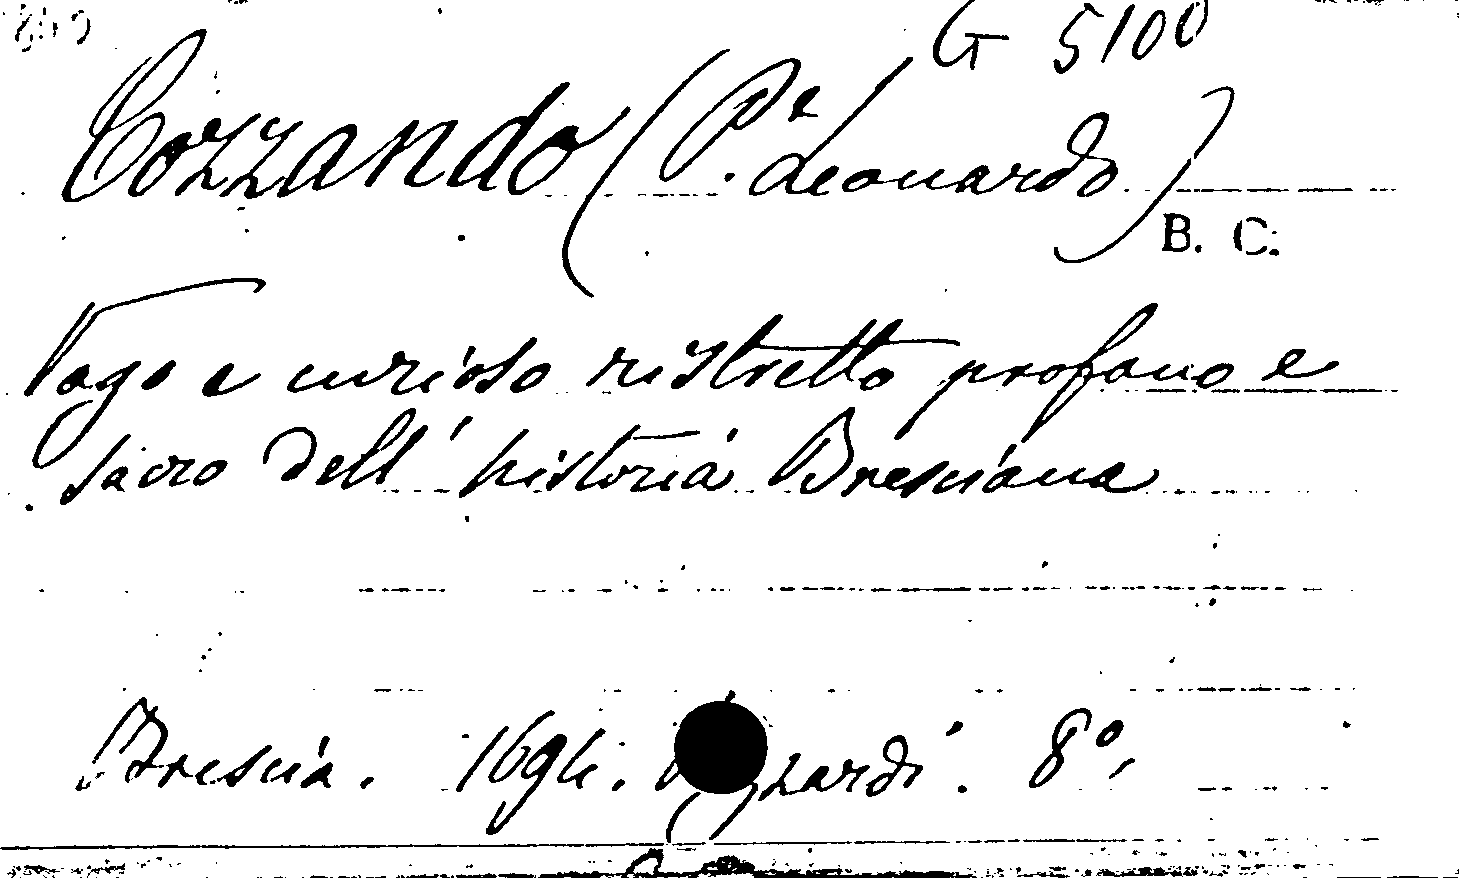 G 5100
Cozzando (P.e Leonardo)
B. C.
Vago e curioso ristretto profano e
sacro dell' historia Bresciana
Brescia. 1694. 8º.